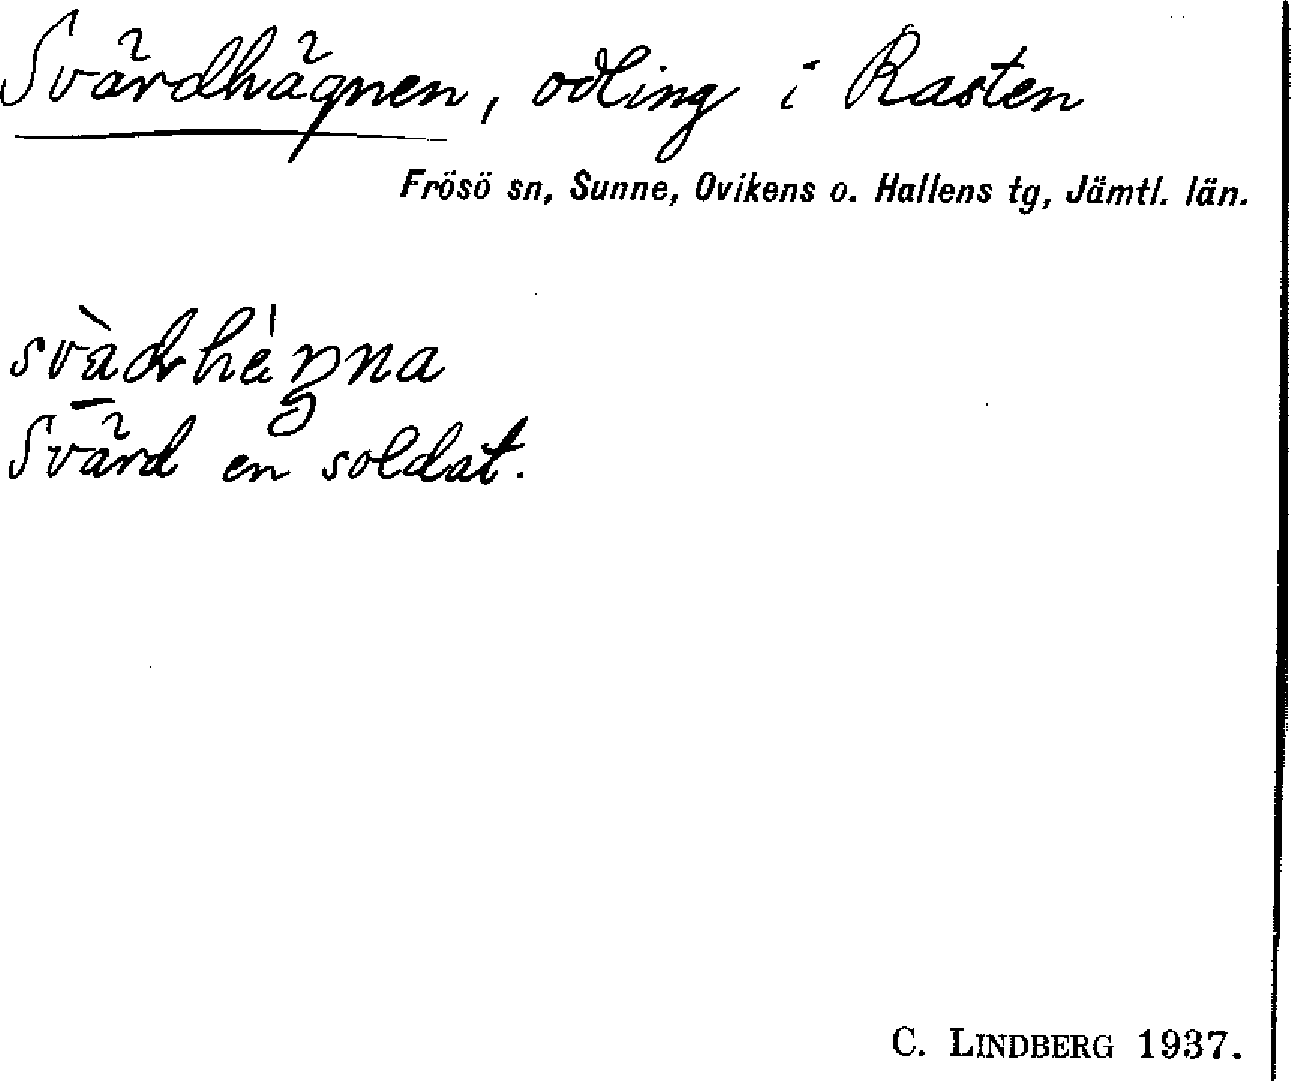 Svärdhägnen, odling i Rasten
Frösö sn, Sunne, Ovikens o. Hallens tg, Jämtl. län.
Svärd en soldat.
C. LINDBERG 1937.